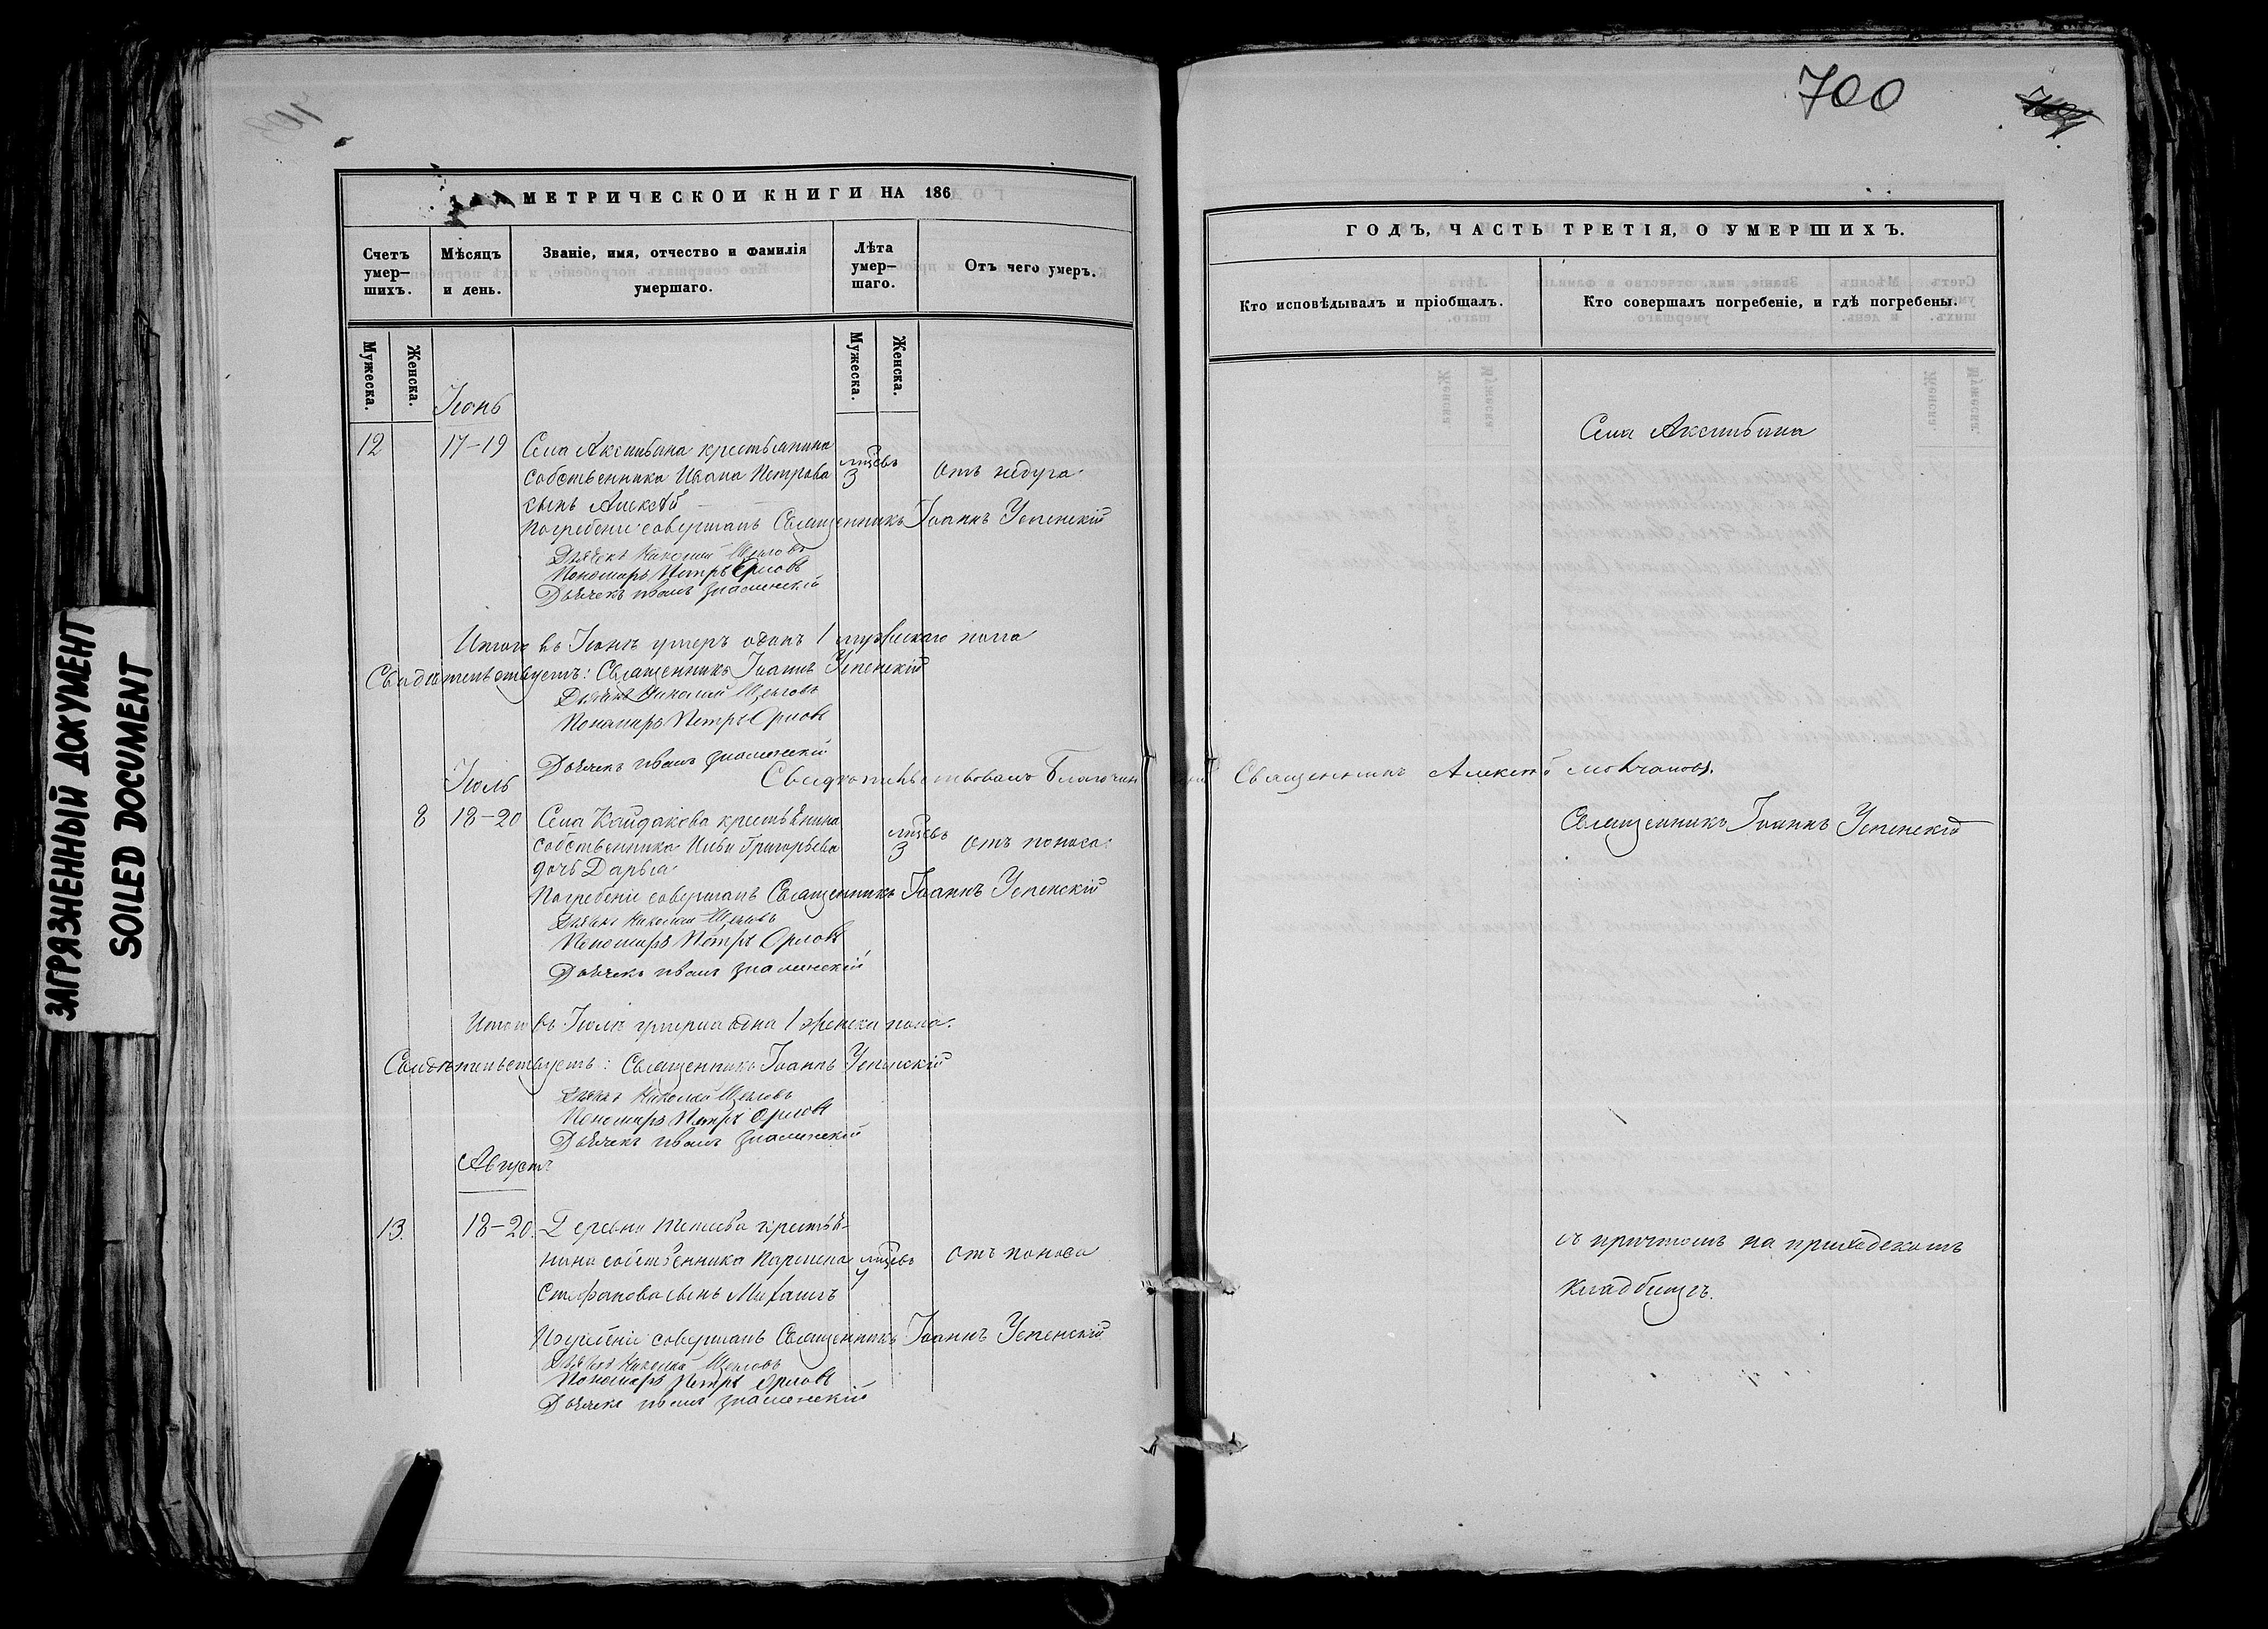 ЗАГРЯЗНЕННЫЙ ДОКУМЕНТ
SOILED DOCUMENT
МЕТРИЧЕСКОЙ КНИГИ НА 186
Счетъ умер-шихъ.
Мѣсяцъ и день.
Званіе, имя, отчество и фамилія умершаго.
Лѣта умер-шаго.
Отъ чего умеръ.
Мужеска.
Женска.
Мужеска.
Женска.
Іюнь
12 17-19 Села Аксиньина крестьянина
собственника Ивана Петрова мѣсцвъ 3 отъ недуга
сынъ Алексѣй
Погребеніе совершалъ Священникъ Іоаннъ Успенскій
Дьячекъ Николай Щегловъ
Пономарь Петръ Орловъ
Дьячекъ Иванъ Знаменскій
Итого въ Іюнѣ умеръ одинъ 1 мужескаго пола
Свидѣтельствуетъ: Священникъ Іоаннъ Успенскій
Дьячекъ Николай Щегловъ
Пономарь Петръ Орловъ
Дьячекъ Иванъ Знаменскій
Іюль
Свидѣтельствовалъ Благочинный Священникъ Алексѣй Молчановъ.
8 18-20 Села Кайдакова крестьянина
собственника Ильи Григорьева мѣсцвъ 3 отъ поноса.
дочь Дарья
Погребеніе совершалъ Священникъ Іоаннъ Успенскій
Дьячекъ Николай Щегловъ
Пономарь Петръ Орловъ
Дьячекъ Иванъ Знаменскій
Итого въ Іюлѣ умерла одна 1 женска пола.
Свидѣтельствуетъ: Священникъ Іоаннъ Успенскій
Дьячекъ Николай Щегловъ
Пономарь Петръ Орловъ
Дьячекъ Иванъ Знаменскій
Августъ
13. 18-20. Деревни крестья-
нина собственника Пармена мѣсцвъ отъ поноса
Стефанова сынъ Михаилъ
Погребеніе совершалъ Священникъ Іоаннъ Успенскій
Дьячекъ Николай Щегловъ
Пономарь Петръ Орловъ
Дьячекъ Иванъ Знаменскій
700
ГОДЪ, ЧАСТЬ ТРЕТІЯ, О УМЕРШИХЪ.
Кто исповѣдывалъ и пріобщалъ.
Кто совершалъ погребеніе, и гдѣ погребены.
Села Аксиньина
Священникъ Іоаннъ Успенскій
съ причтомъ на приходскомъ
кладбищѣ.